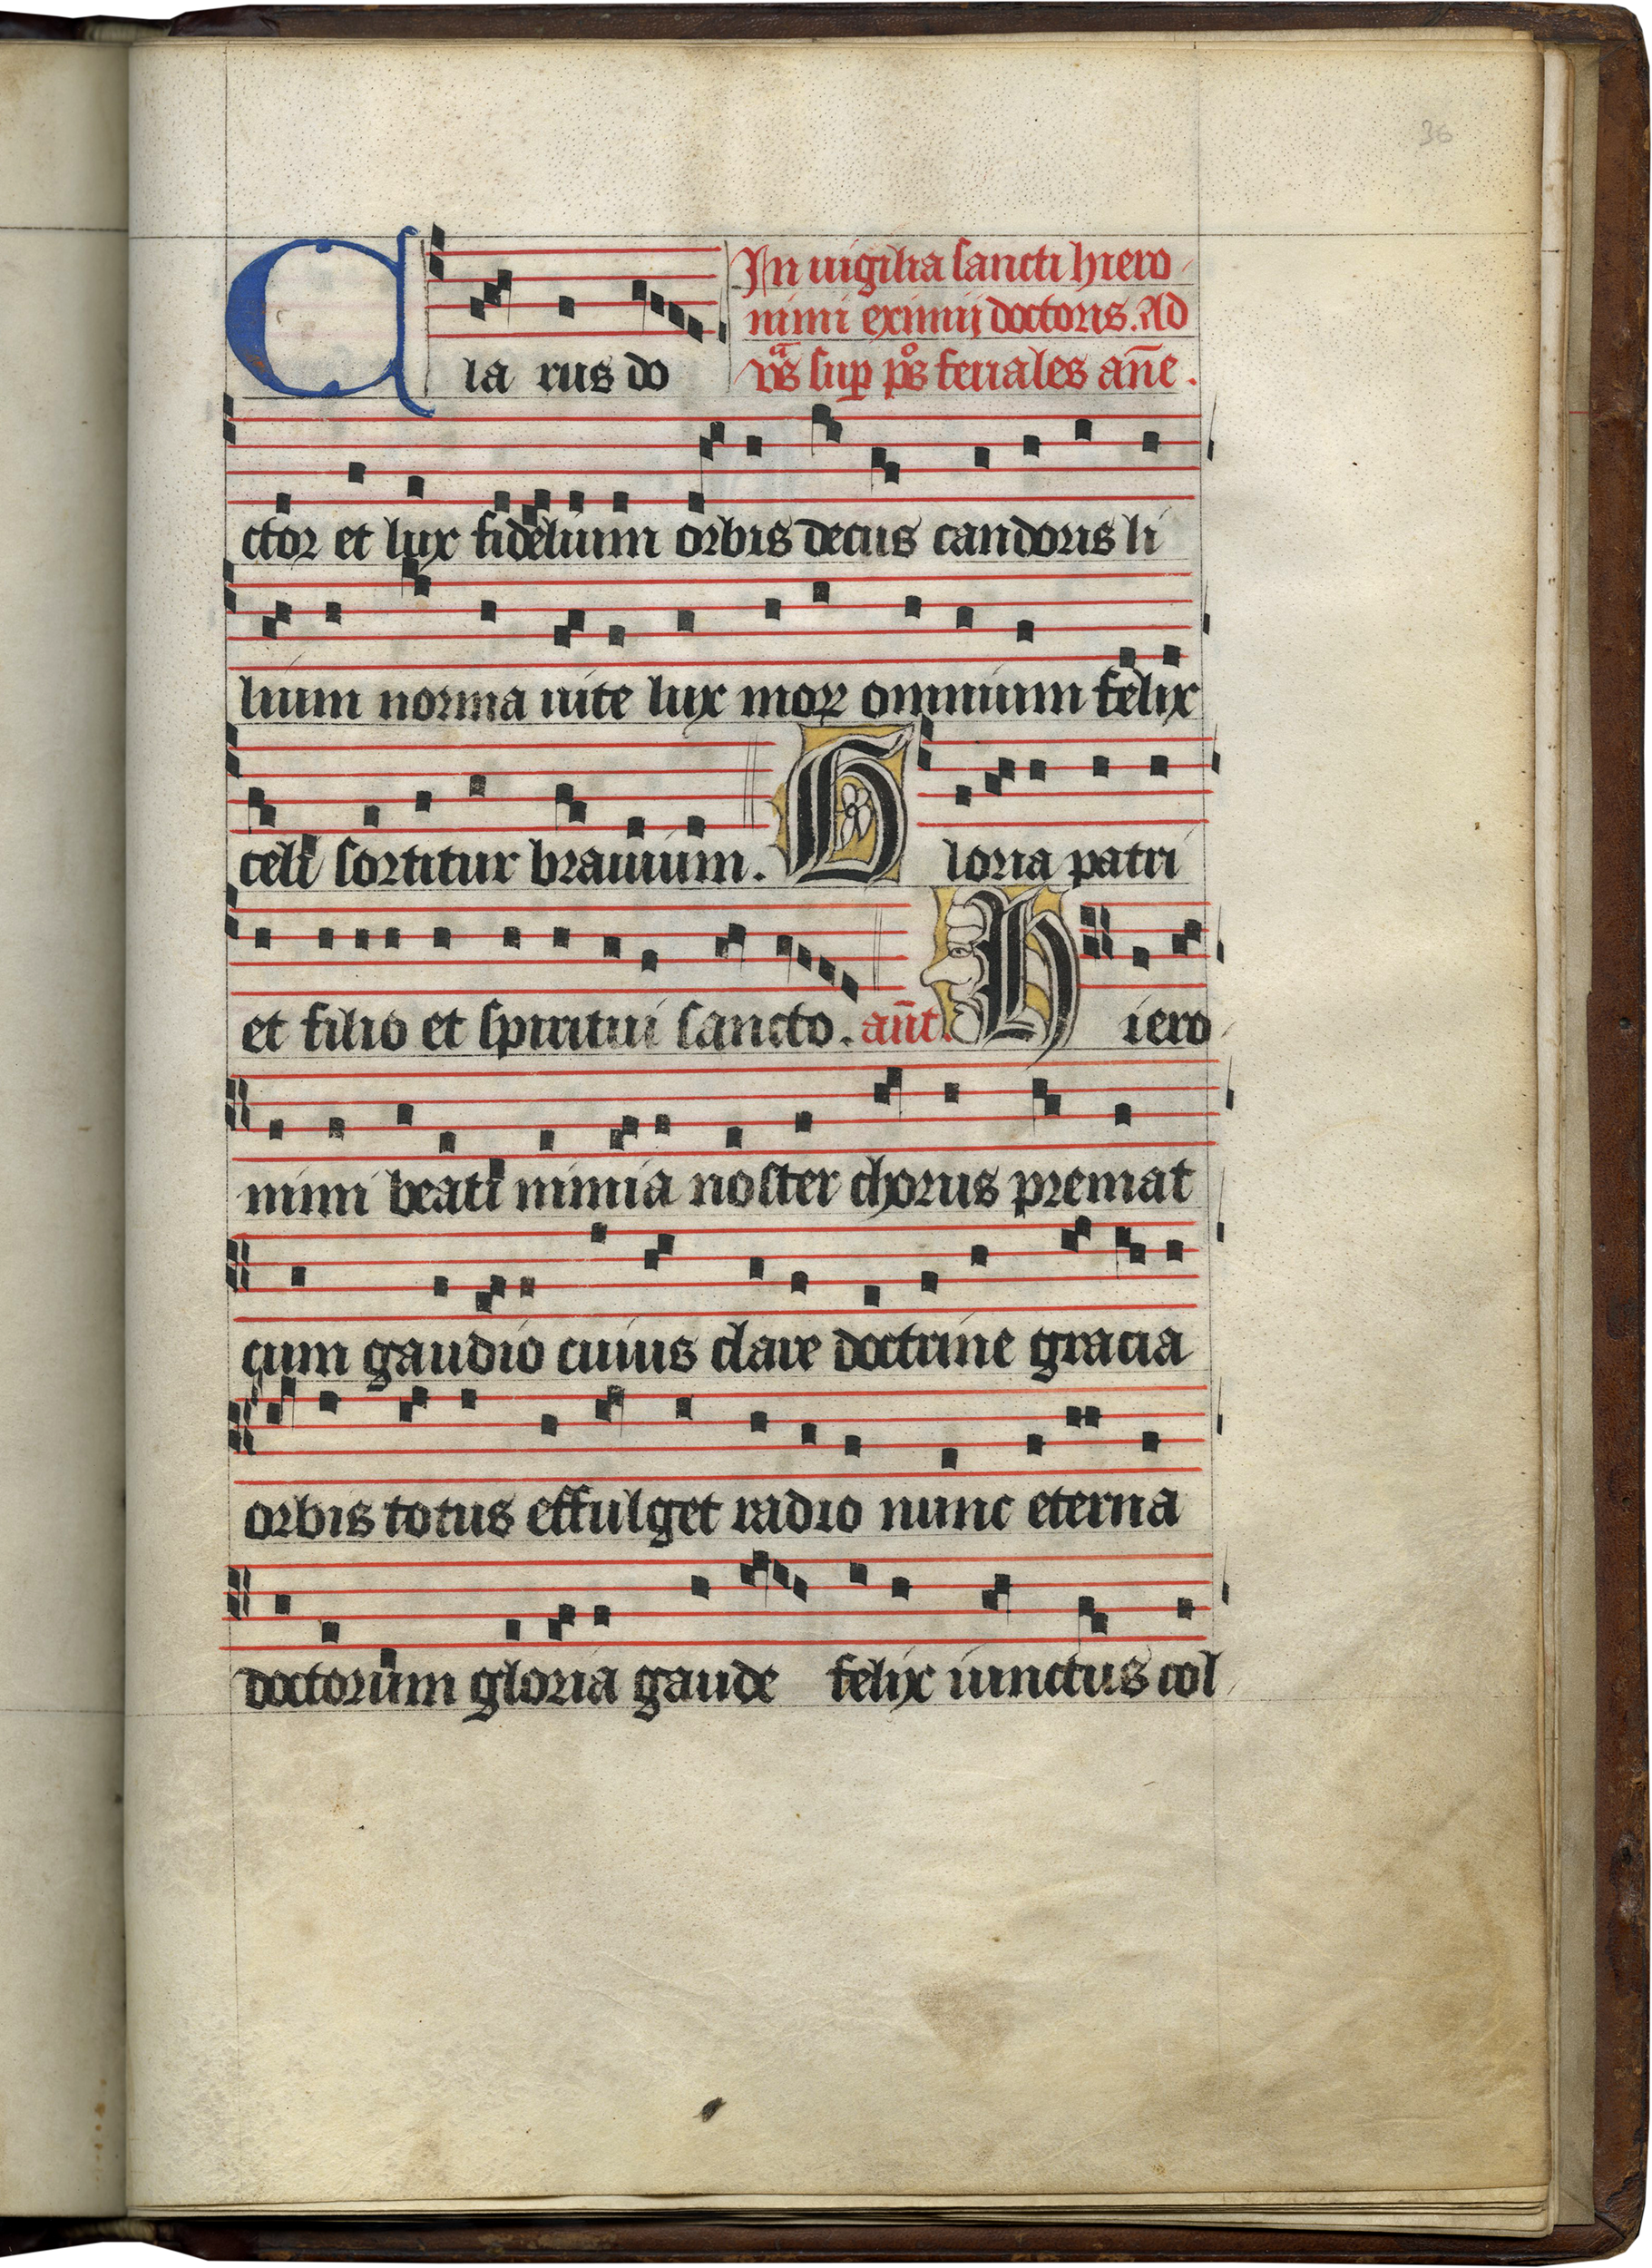 36
In uigilia sancti hiero
nimi eximij doctoris. Ad
vas sup pos feriales an̄e.
Clarus do
ctor et lux fidelium orbis decus candoris li
lium norma uite lux moꝝ omnium felix
celi sortitur brauium. Gloria patri
et filio et spiritui sancto. an̄t. Hiero
nimi beati nimia noster chorus premat
cum gaudio cuius clare doctrine gracia
orbis totus effulget radio nunc eterna
doctorum gloria gaude felix iunctus col